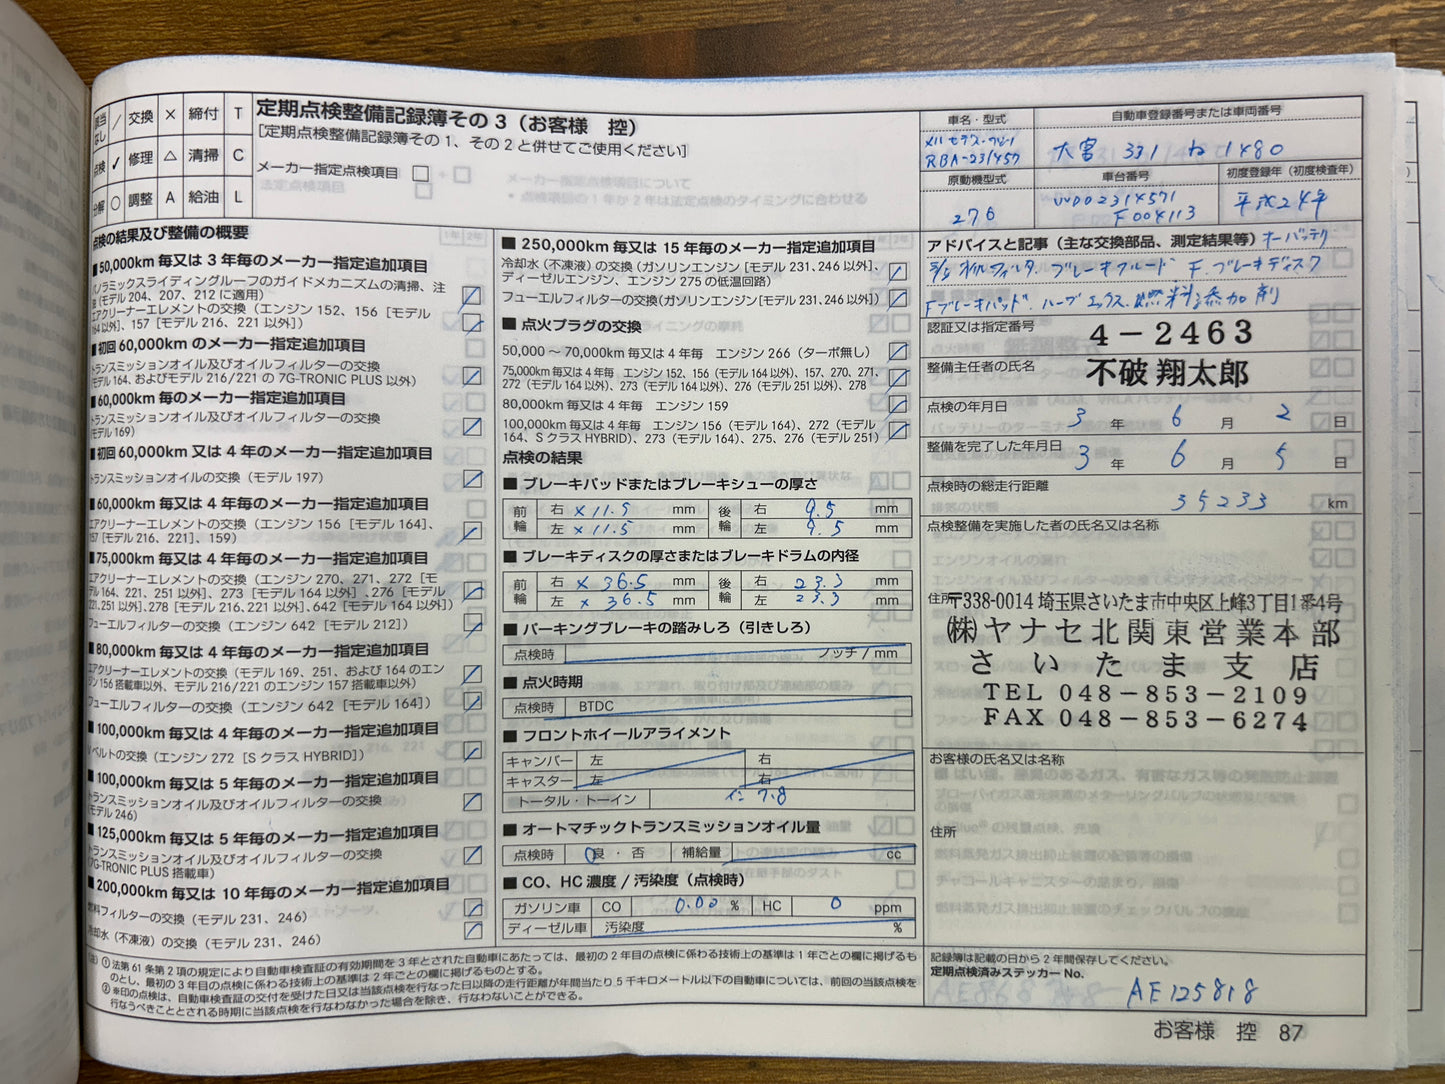 該当なし / 交換 × 締付 T
点検 ✓ 修理 △ 清掃 C
分解 ○ 調整 A 給油 L
定期点検整備記録簿その3（お客様 控）
［定期点検整備記録簿その1、その2と併せてご使用ください］
メーカー指定点検項目 □
点検の結果及び整備の概要
■50,000km毎又は3年毎のメーカー指定追加項目
パノラミックスライディングルーフのガイドメカニズムの清掃、注
（モデル204、207、212に適用）
エアクリーナーエレメントの交換（エンジン152、156［モデル
164以外］、157［モデル216、221以外］）
■初回60,000kmのメーカー指定追加項目
トランスミッションオイル及びオイルフィルターの交換
（モデル164、およびモデル216/221の7G-TRONIC PLUS以外）
■60,000km毎のメーカー指定追加項目
トランスミッションオイル及びオイルフィルターの交換
（モデル169）
■初回60,000km又は4年毎のメーカー指定追加項目
トランスミッションオイルの交換（モデル197）
■60,000km毎又は4年毎のメーカー指定追加項目
エアクリーナーエレメントの交換（エンジン156［モデル164］、
157［モデル216、221］、159）
■75,000km毎又は4年毎のメーカー指定追加項目
エアクリーナーエレメントの交換（エンジン270、271、272［モ
デル164、221、251以外］、273［モデル164以外］、276［モデル
221、251以外］、278［モデル216、221以外］、642［モデル164以外］）
フューエルフィルターの交換（エンジン642［モデル212］）
■80,000km毎又は4年毎のメーカー指定追加項目
エアクリーナーエレメントの交換（モデル169、251、および164のエン
ジン156搭載車以外、モデル216/221のエンジン157搭載車以外）
フューエルフィルターの交換（エンジン642［モデル164］）
■100,000km毎又は4年毎のメーカー指定追加項目
Vベルトの交換（エンジン272［SクラスHYBRID］）
■100,000km毎又は5年毎のメーカー指定追加項目
トランスミッションオイル及びオイルフィルターの交換
（モデル246）
■125,000km毎又は5年毎のメーカー指定追加項目
トランスミッションオイル及びオイルフィルターの交換
（7G-TRONIC PLUS搭載車）
■200,000km毎又は10年毎のメーカー指定追加項目
燃料フィルターの交換（モデル231、246）
冷却水（不凍液）の交換（モデル231、246）
■250,000km毎又は15年毎のメーカー指定追加項目
冷却水（不凍液）の交換（ガソリンエンジン［モデル231、246以外］、
ディーゼルエンジン、エンジン275の低温回路）
フューエルフィルターの交換（ガソリンエンジン［モデル231、246以外］）
■点火プラグの交換
50,000～70,000km毎又は4年毎 エンジン266（ターボ無し）
75,000km毎又は4年毎 エンジン152、156（モデル164以外）、157、270、271、
272（モデル164以外）、273（モデル164以外）、276（モデル251以外）、278
80,000km毎又は4年毎 エンジン159
100,000km毎又は4年毎 エンジン156（モデル164）、272（モデル
164、SクラスHYBRID）、273（モデル164）、275、276（モデル251）
点検の結果
■ブレーキパッドまたはブレーキシューの厚さ
前輪 右 ×11.5 mm 後輪 右 9.5 mm
左 ×11.5 mm 左 9.5 mm
■ブレーキディスクの厚さまたはブレーキドラムの内径
前輪 右 ×36.5 mm 後輪 右 23.3 mm
左 ×36.5 mm 左 23.3 mm
■パーキングブレーキの踏みしろ（引きしろ）
点検時 ノッチ/mm
■点火時期
点検時 BTDC
■フロントホイールアライメント
キャンバー 左 右
キャスター 左 右
トータル・トーイン イン 7.8
■オートマチックトランスミッションオイル量
点検時 良・否 補給量 cc
■CO、HC濃度/汚染度（点検時）
ガソリン車 CO 0.00 % HC 0 ppm
ディーゼル車 汚染度 %
車名・型式
メルセデス・ベンツ
RBA-231457
自動車登録番号または車両番号
大宮 331 ね 1480
原動機型式
276
車台番号
WDD2314571
F004113
初度登録年（初度検査年）
平成24年
アドバイスと記事（主な交換部品、測定結果等）
オイルフィルタ. ブレーキフルード F.ブレーキディスク
Fブレーキパッド. 燃料添加剤
認証又は指定番号
4－2463
整備主任者の氏名
不破 翔太郎
点検の年月日
3年 6月 2日
整備を完了した年月日
3年 6月 5日
点検時の総走行距離
35233 km
点検整備を実施した者の氏名又は名称
住所
〒338-0014 埼玉県さいたま市中央区上峰3丁目1番4号
㈱ヤナセ北関東営業本部
さいたま支店
TEL 048－853－2109
FAX 048－853－6274
お客様の氏名又は名称
住所
（注）①法第61条第2項の規定により自動車検査証の有効期間を3年とされた自動車にあたっては、最初の2年目の点検に係わる技術上の基準は1年ごとの欄に掲げるも
のとし、最初の3年目の点検に係わる技術上の基準は2年ごとの欄に掲げるものとする。
②※印の点検は、自動車検査証の交付を受けた日又は当該点検を行なった日以降の走行距離が年間当たり5千キロメートル以下の自動車については、前回の当該点検を
行なうべきこととされる時期に当該点検を行なわなかった場合を除き、行なわないことができる。
記録簿は記載の日から2年間保存してください。
定期点検済みステッカーNo.
AE125818
お客様 控 87